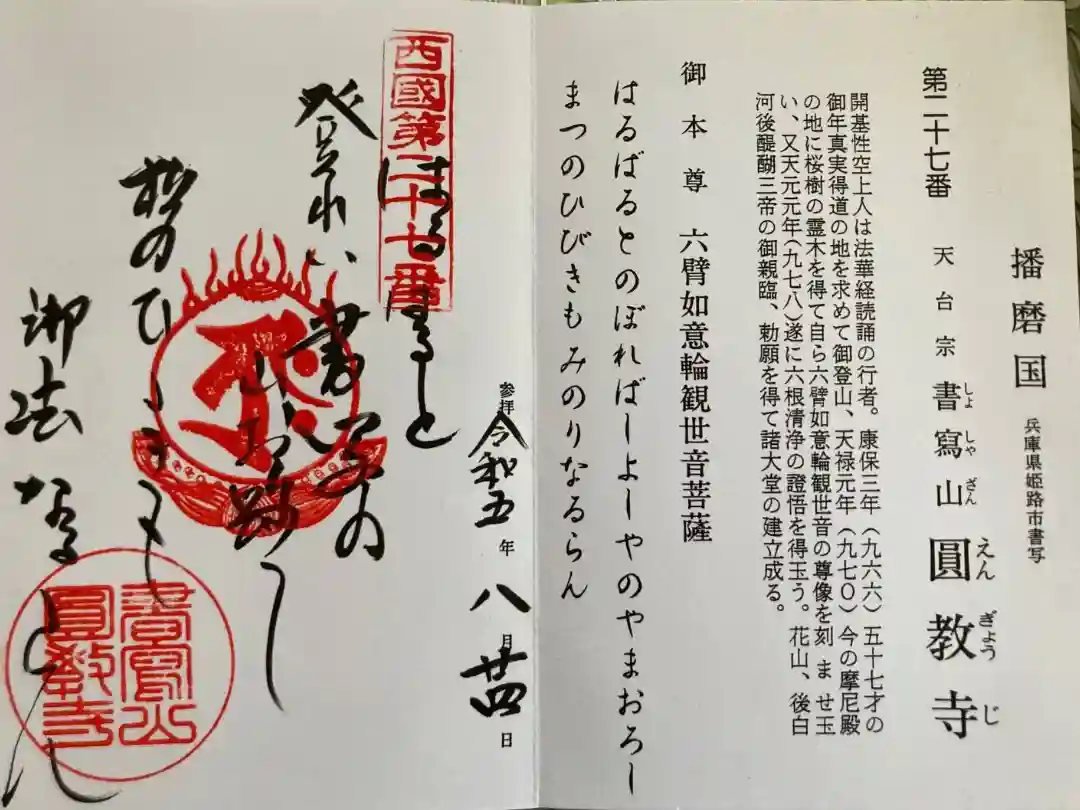 播磨国 兵庫県姫路市書写
第二十七番 天台宗 書寫山 圓教寺
しょ しゃ ざん えん ぎょう じ
開基性空上人は法華経読誦の行者。康保三年(九六六)五十七才の
御年真実得道の地を求めて御登山、天禄元年(九七〇)今の摩尼殿
の地に桜樹の霊木を得て自ら六臂如意輪観世音の尊像を刻ませ玉
い、又天元元年(九七八)遂に六根清浄の證悟を得玉う。花山、後白
河後醍醐三帝の御親臨、勅願を得て諸大堂の建立成る。
御本尊 六臂如意輪観世音菩薩
はるばるとのぼればしよしやのやまおろし
まつのひびきもみのりなるらん
参拝 令和五年八月廿四日
西國第二十七番
はるはると
登れハ書写の
山おろし
松のひゝきも
御法なるらん
書寫山
圓教寺